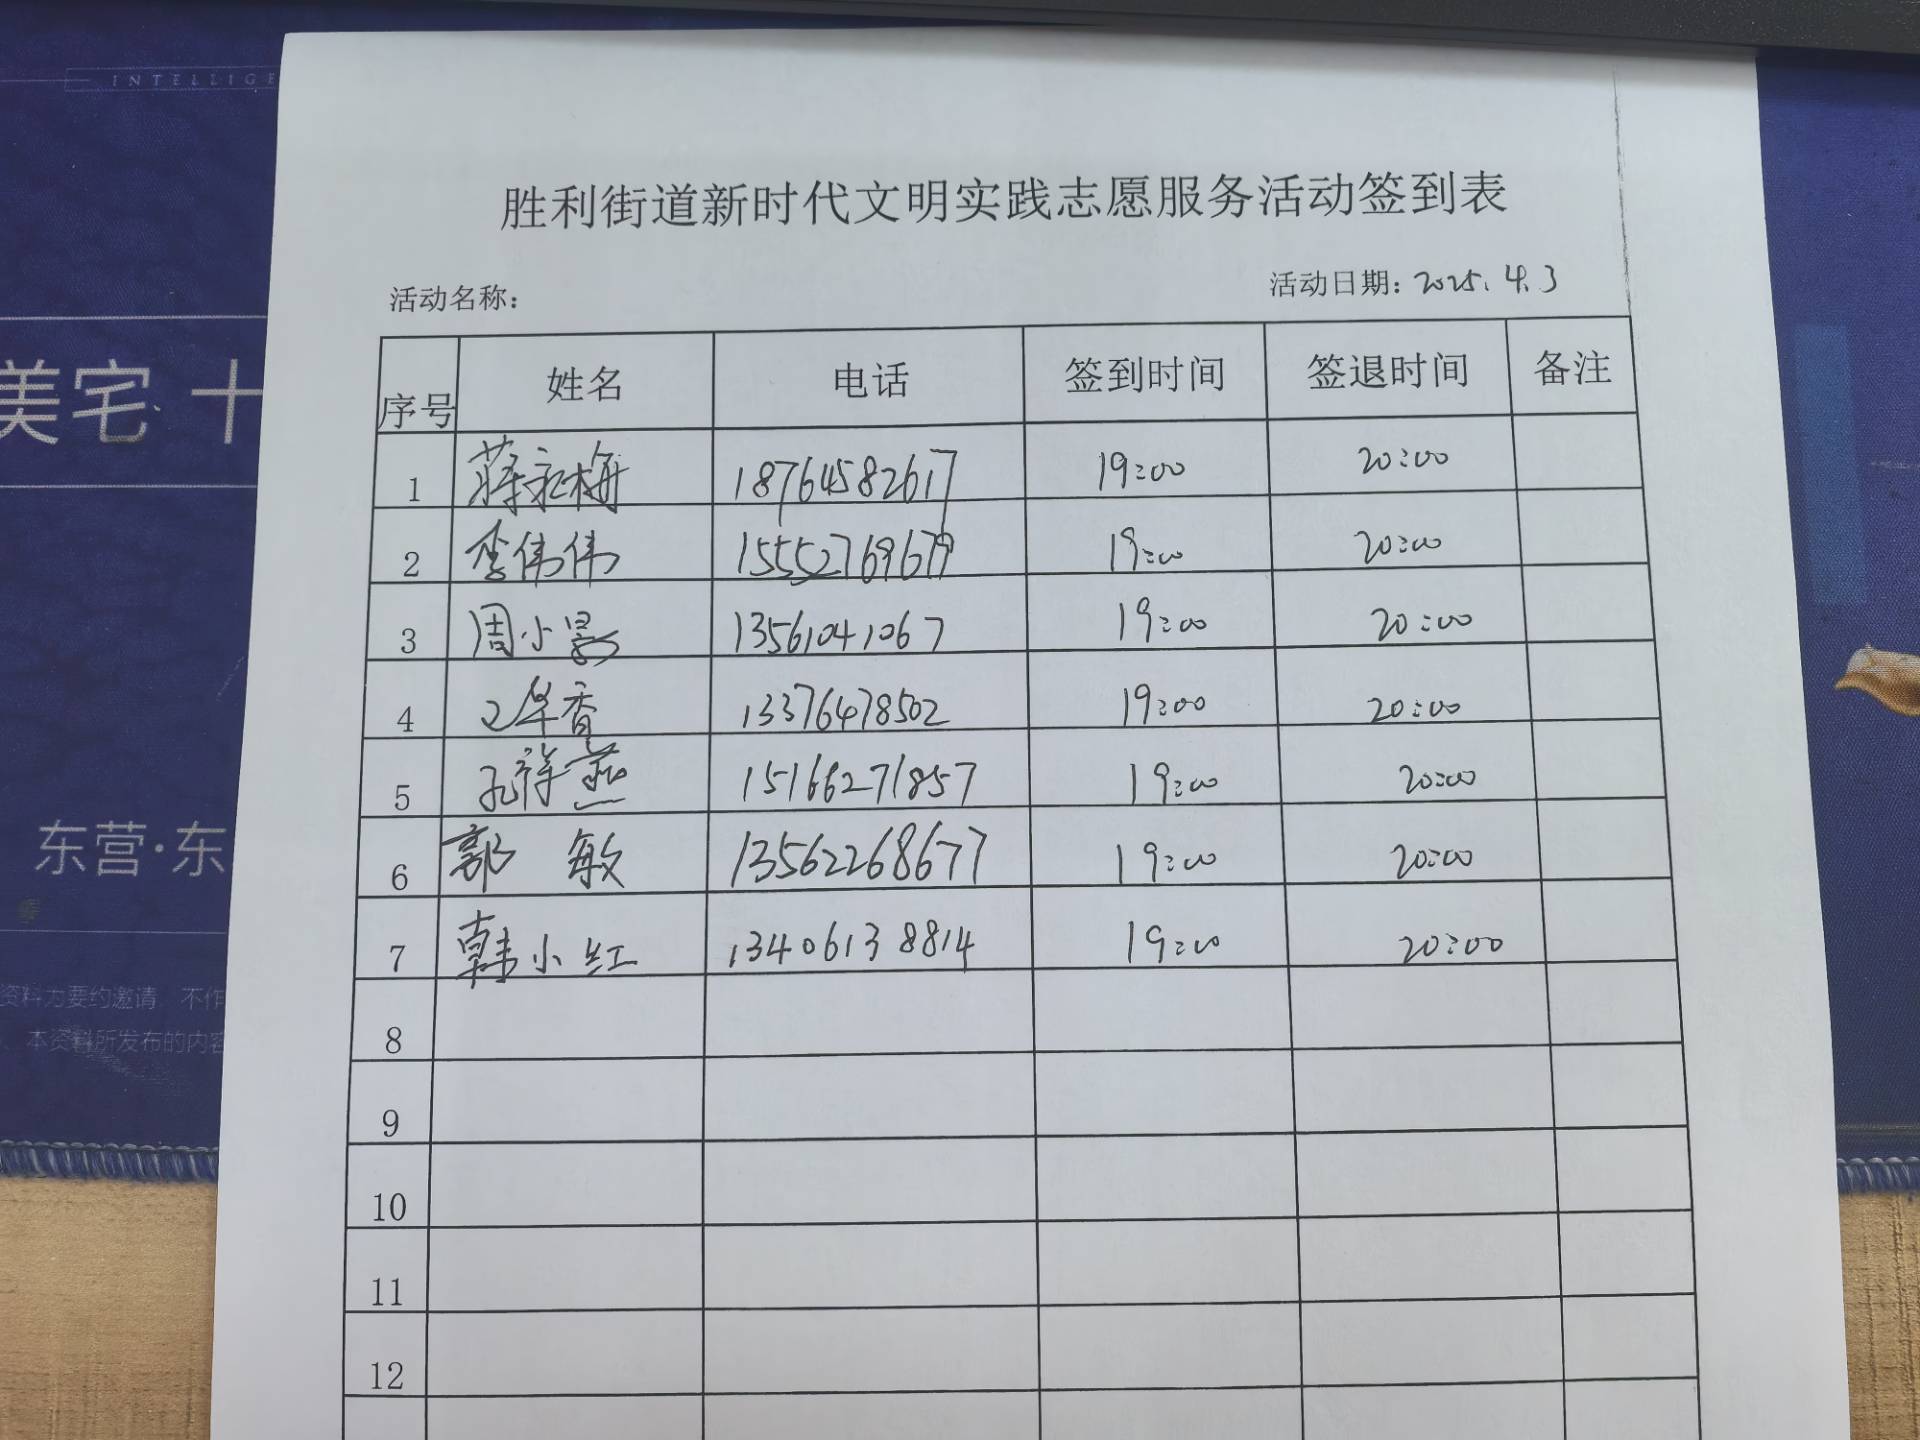 INTELLIGE
美宅 十
东营·东
资料为要约邀请 不作
本资料所发布的内容
胜利街道新时代文明实践志愿服务活动签到表
活动名称： 活动日期：2025.4.3
序号 姓名 电话 签到时间 签退时间 备注
1 蒋永梅 18764582617 19:00 20:00
2 李伟伟 15552769679 19:00 20:00
3 周小 13561041067 19:00 20:00
4 华香 13376478502 19:00 20:00
5 孔祥燕 15166271857 19:00 20:00
6 郭敏 13562268677 19:00 20:00
7 韩小红 13406138814 19:00 20:00
8
9
10
11
12